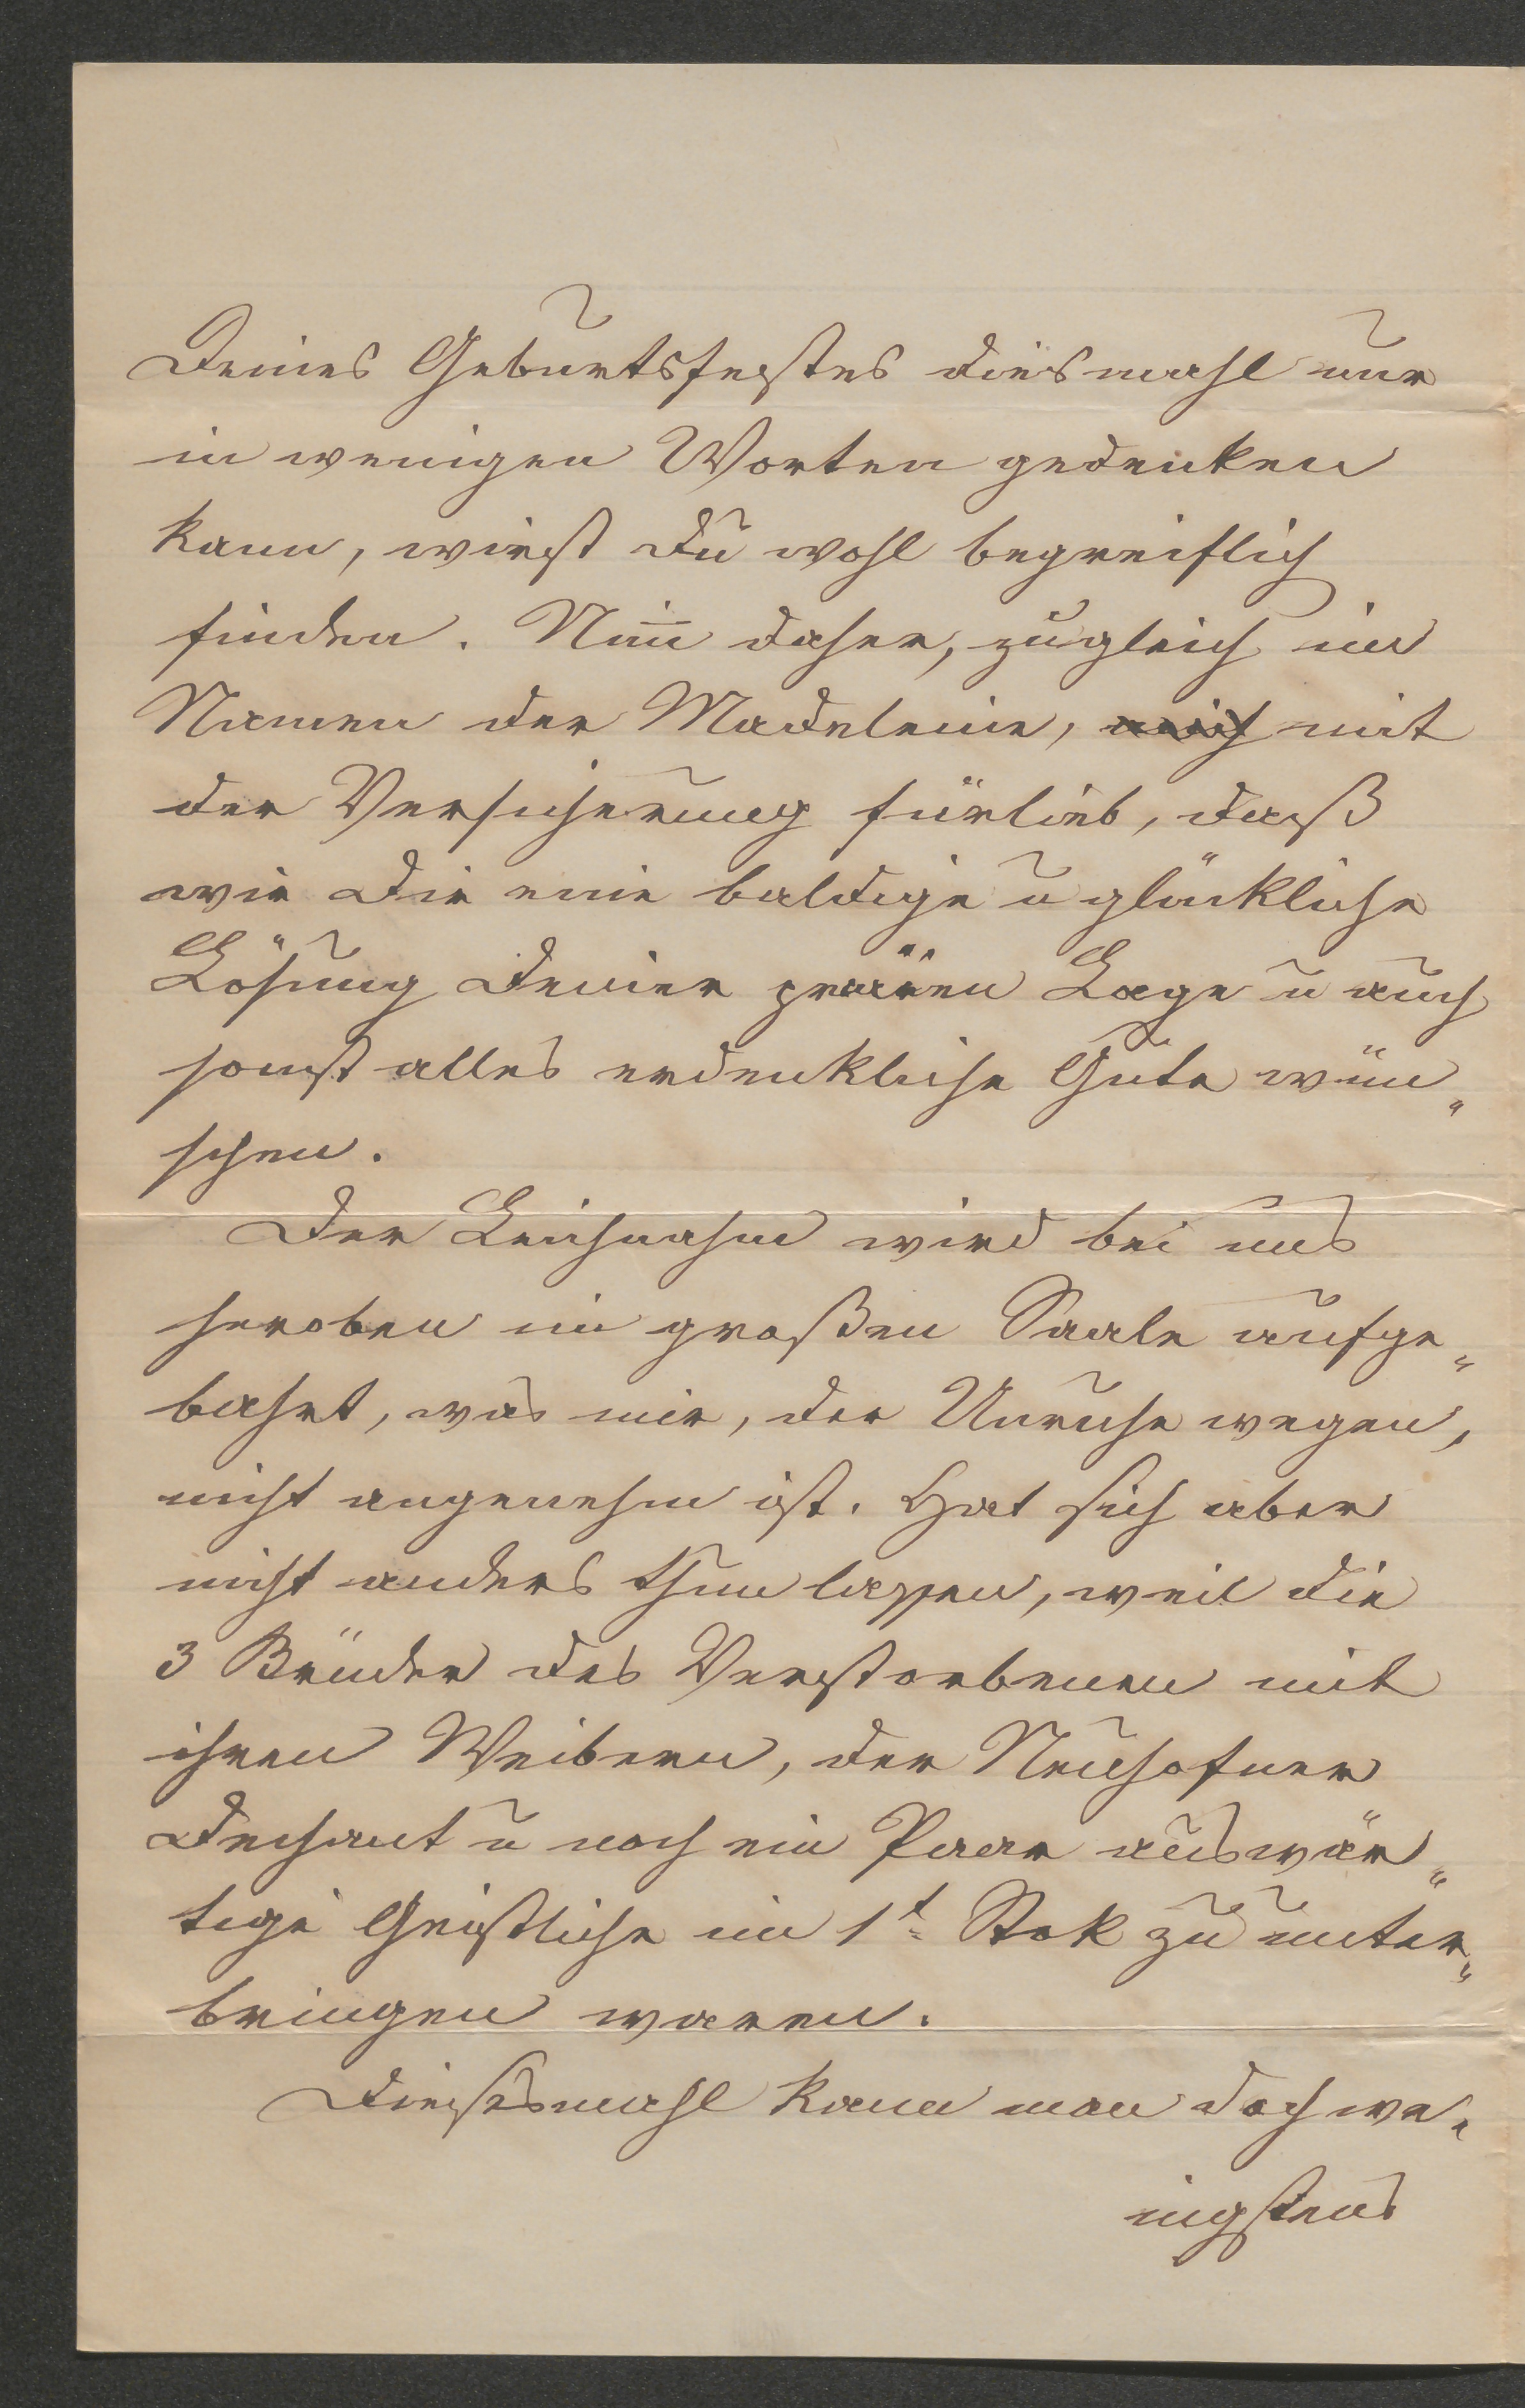 Deines Geburtsfestes diesmahl nur
in wenigen Worten gedenken
kann, wirst Du wohl begreiflich
finden. Nim̅ daher, zugleich im
Namen der Madeleine, mich mit
der Versicherung fürlieb, daß
wir Dir eine baldige u glückliche
Lösung Deiner Lage u auch
sonst alles erdenkliche Gute wün„
schen.
Der Leichnahm wird bei uns
heroben im großen Saale aufge„
bahrt, was mir, der Unruhe wegen,
nicht angenehm ist. Hat sich aber
nicht anders thun lassen, weil die
3 Brüder des Verstorbenen mit
ihren Weibern, der Neuhofner
Dechant u noch ein Paar auswär„
tige Geistliche im 1t Stok zu unter„
bringen waren.
Diesesmahl kann man doch we„
nigstens